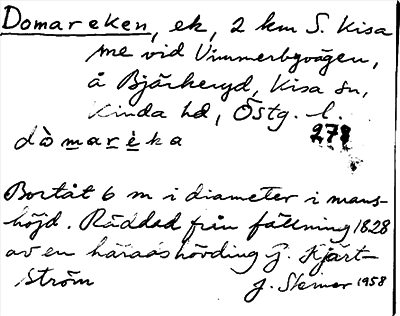 Domareken, ek, 2 km S. Kisa
sne vid Vimmerbyvägen,
å Bjärkeryd, Kisa sn,
Kinda hd, Östg. l.
278
dòmarèka
Bortåt 6 m i diameter i mans-
höjd. Räddad från fällning 1828
av en häradshövding G. Kjärt-
ström
J. Steiner 1958